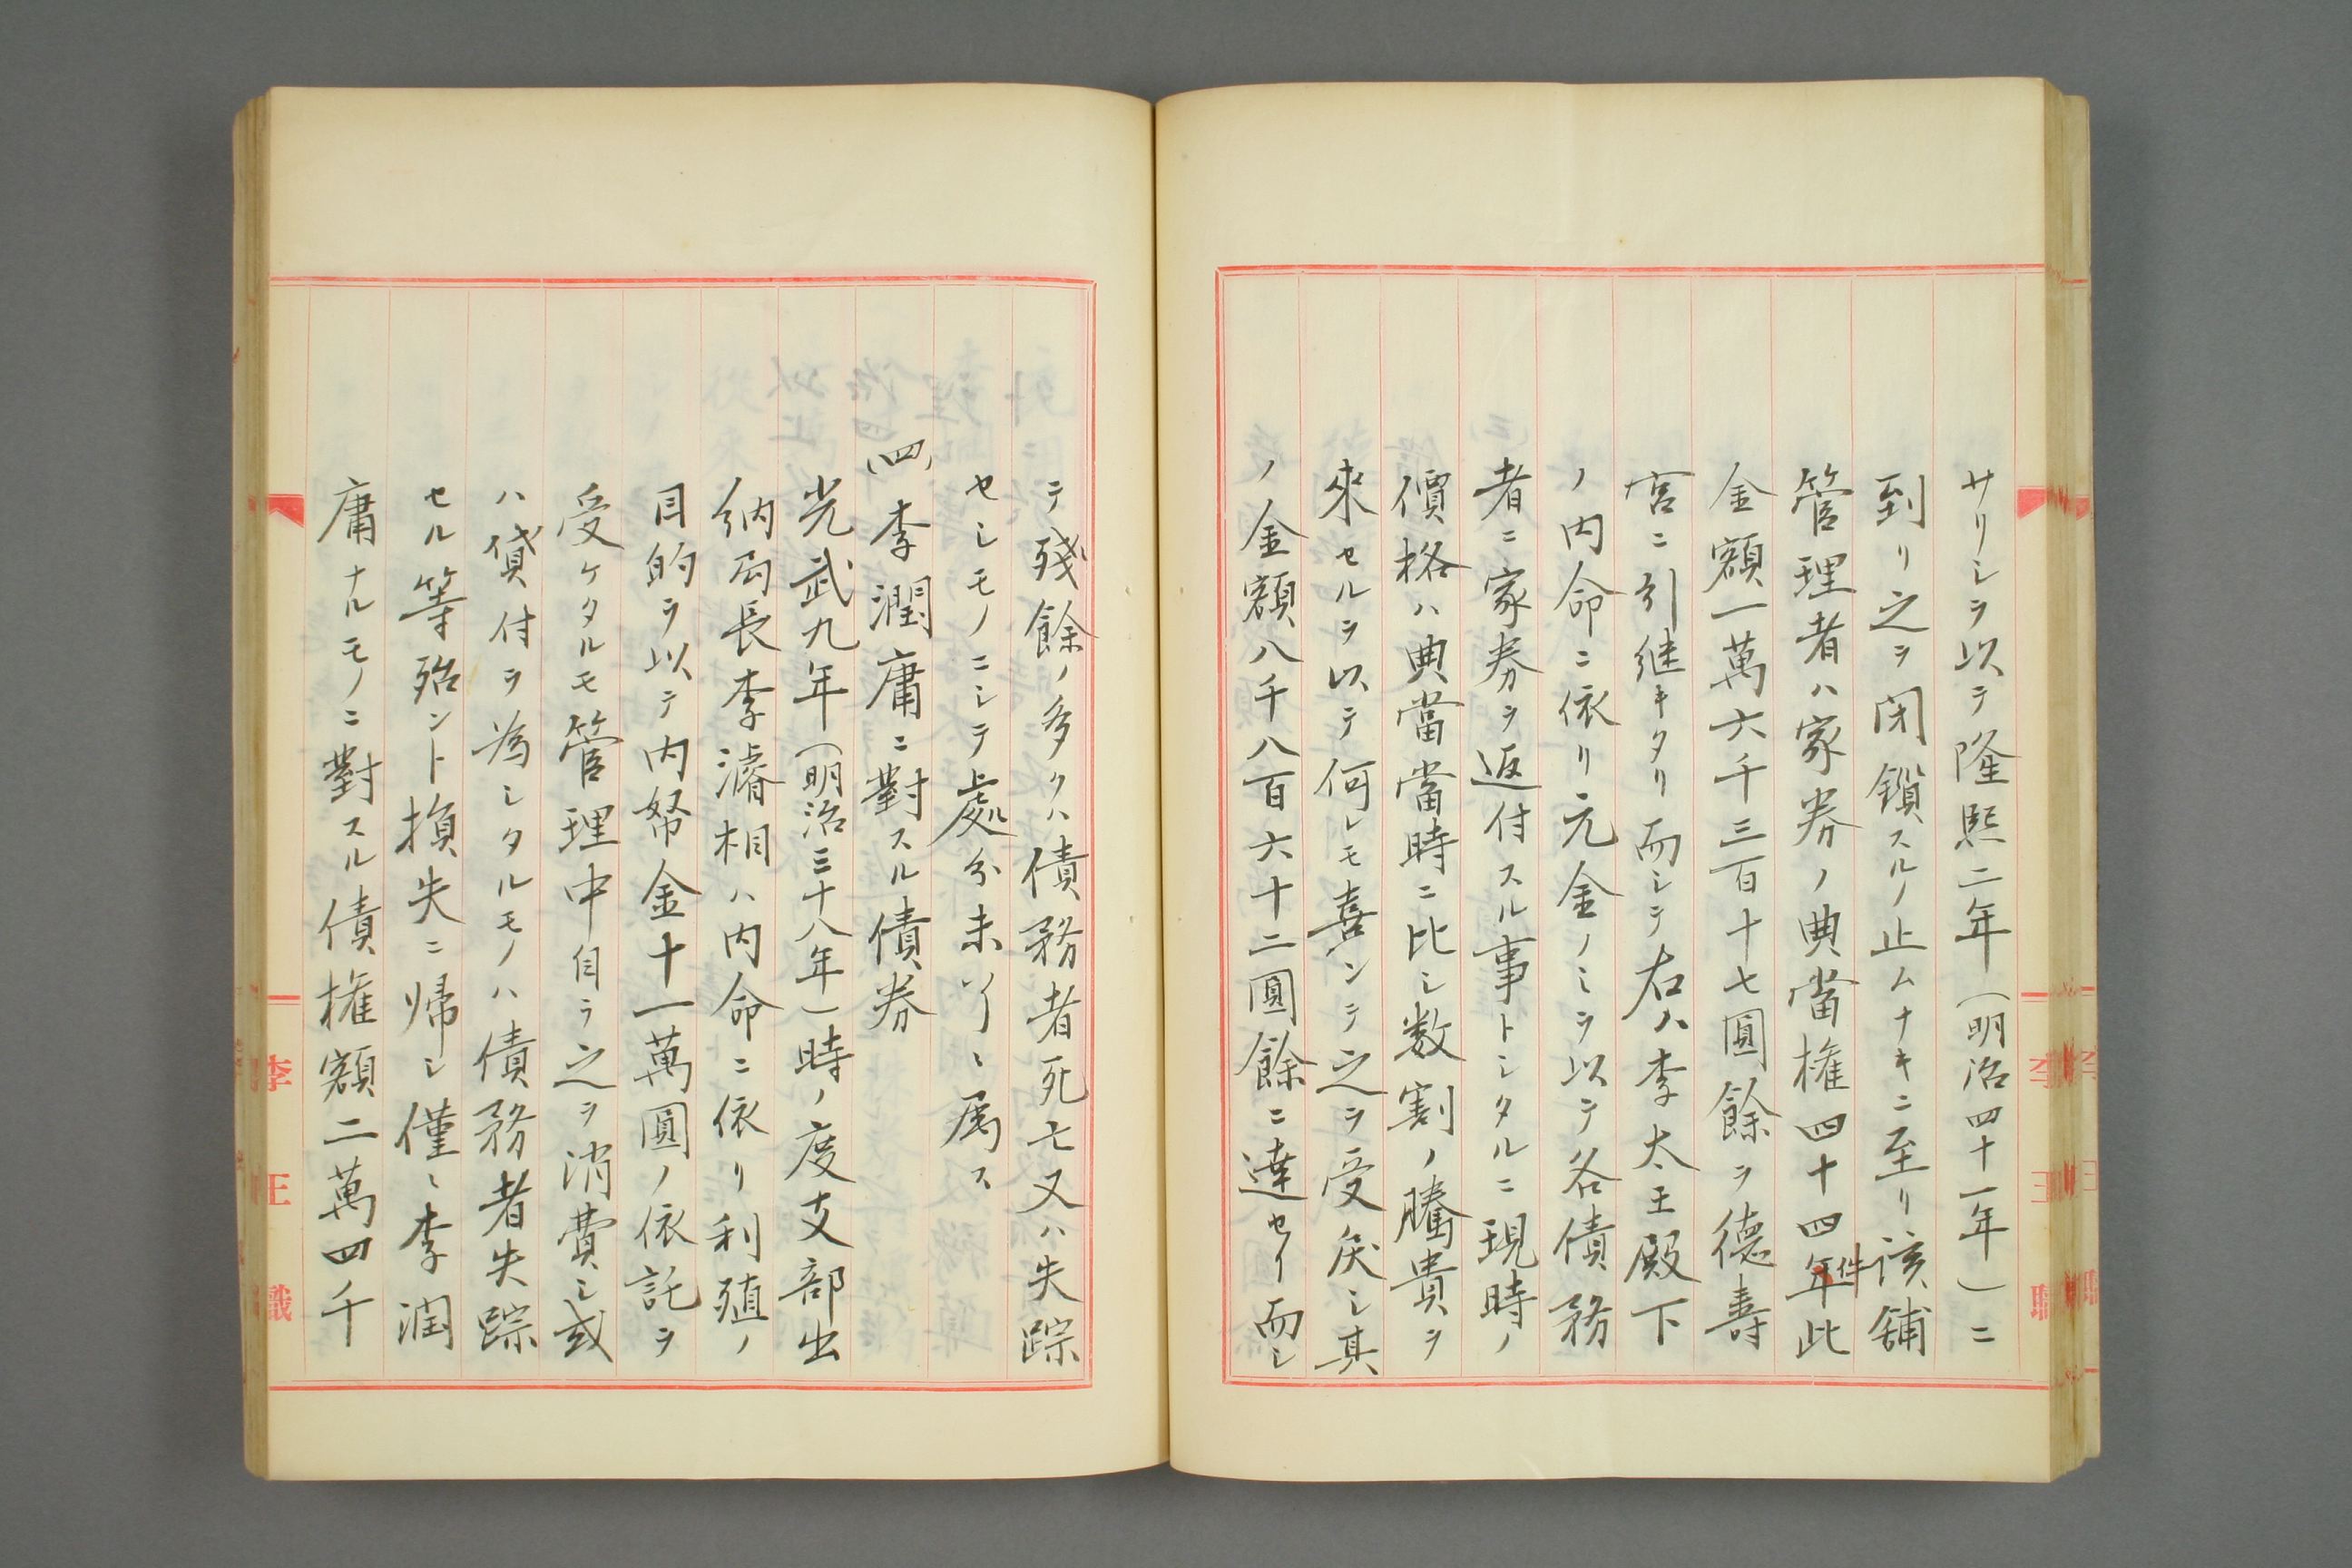 サリシヲ以テ隆熙二年(明治四十一年)ニ
到リ之ヲ閉鎖スルノ止ムナキニ至リ該舗
管理者ハ家券ノ典當権四十四件此
金額一萬六千三百十七圓餘ヲ徳壽
宮ニ引継キタリ而シテ右ハ李太王殿下
ノ内命ニ依リ元金ノミヲ以テ各債務
者ニ家券ヲ返付スル事トシタルニ現時ノ
價格ハ典當當時ニ比シ数割ノ騰貴ヲ
來セルヲ以テ何レモ喜ンテ之ヲ受戻シ其
ノ金額八千八百六十二圓餘ニ達セリ而シ
テ残餘ノ多クハ債務者死亡又ハ失踪
セシモノニシテ處分未了ニ属ス
(四)李潤庸ニ對スル債券
光武九年(明治三十八年)時ノ度支部出
納局長李濬相ハ内命ニ依リ利殖ノ
目的ヲ以テ内帑金十一萬圓ノ依託ヲ
受ケタルモ管理中自ラ之ヲ消費シ或
ハ貸付ヲ為シタルモノハ債務者失踪
セル等殆ント損失ニ帰シ僅ニ李潤
庸ナルモノニ對スル債権額二萬四千
李王職